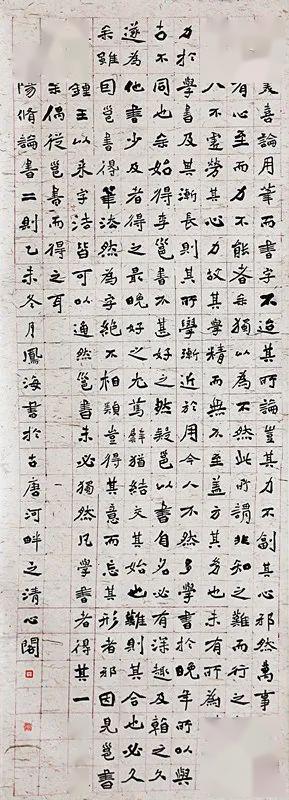 美喜論用筆而書字不迨其所論豈其力不副其心邪然萬事
有心至而力不能者余獨以為不然此所謂非知之難而行之
人不虛勞其心力故其學精而無不至蓋方其幼也未有所為
力於學書及其漸長則其所學漸近於用今人不然多學書於晚年所以與
古不同也余始得李邕書不甚好之然疑邕以書自名必有深趣及看之久
遂為他書少及者得之最晚好之尤篤譬猶結交其始也難則其合也必久
余雖因邕書得筆法然為字絕不相類豈得其意而忘其形者邪因見邕書
鍾王以來字法皆可以通然邕書未必獨然凡學書者得其一
余偶從邕書而得之耳
陽脩論書二則乙未冬月鳳海書於古唐河畔之清心閣